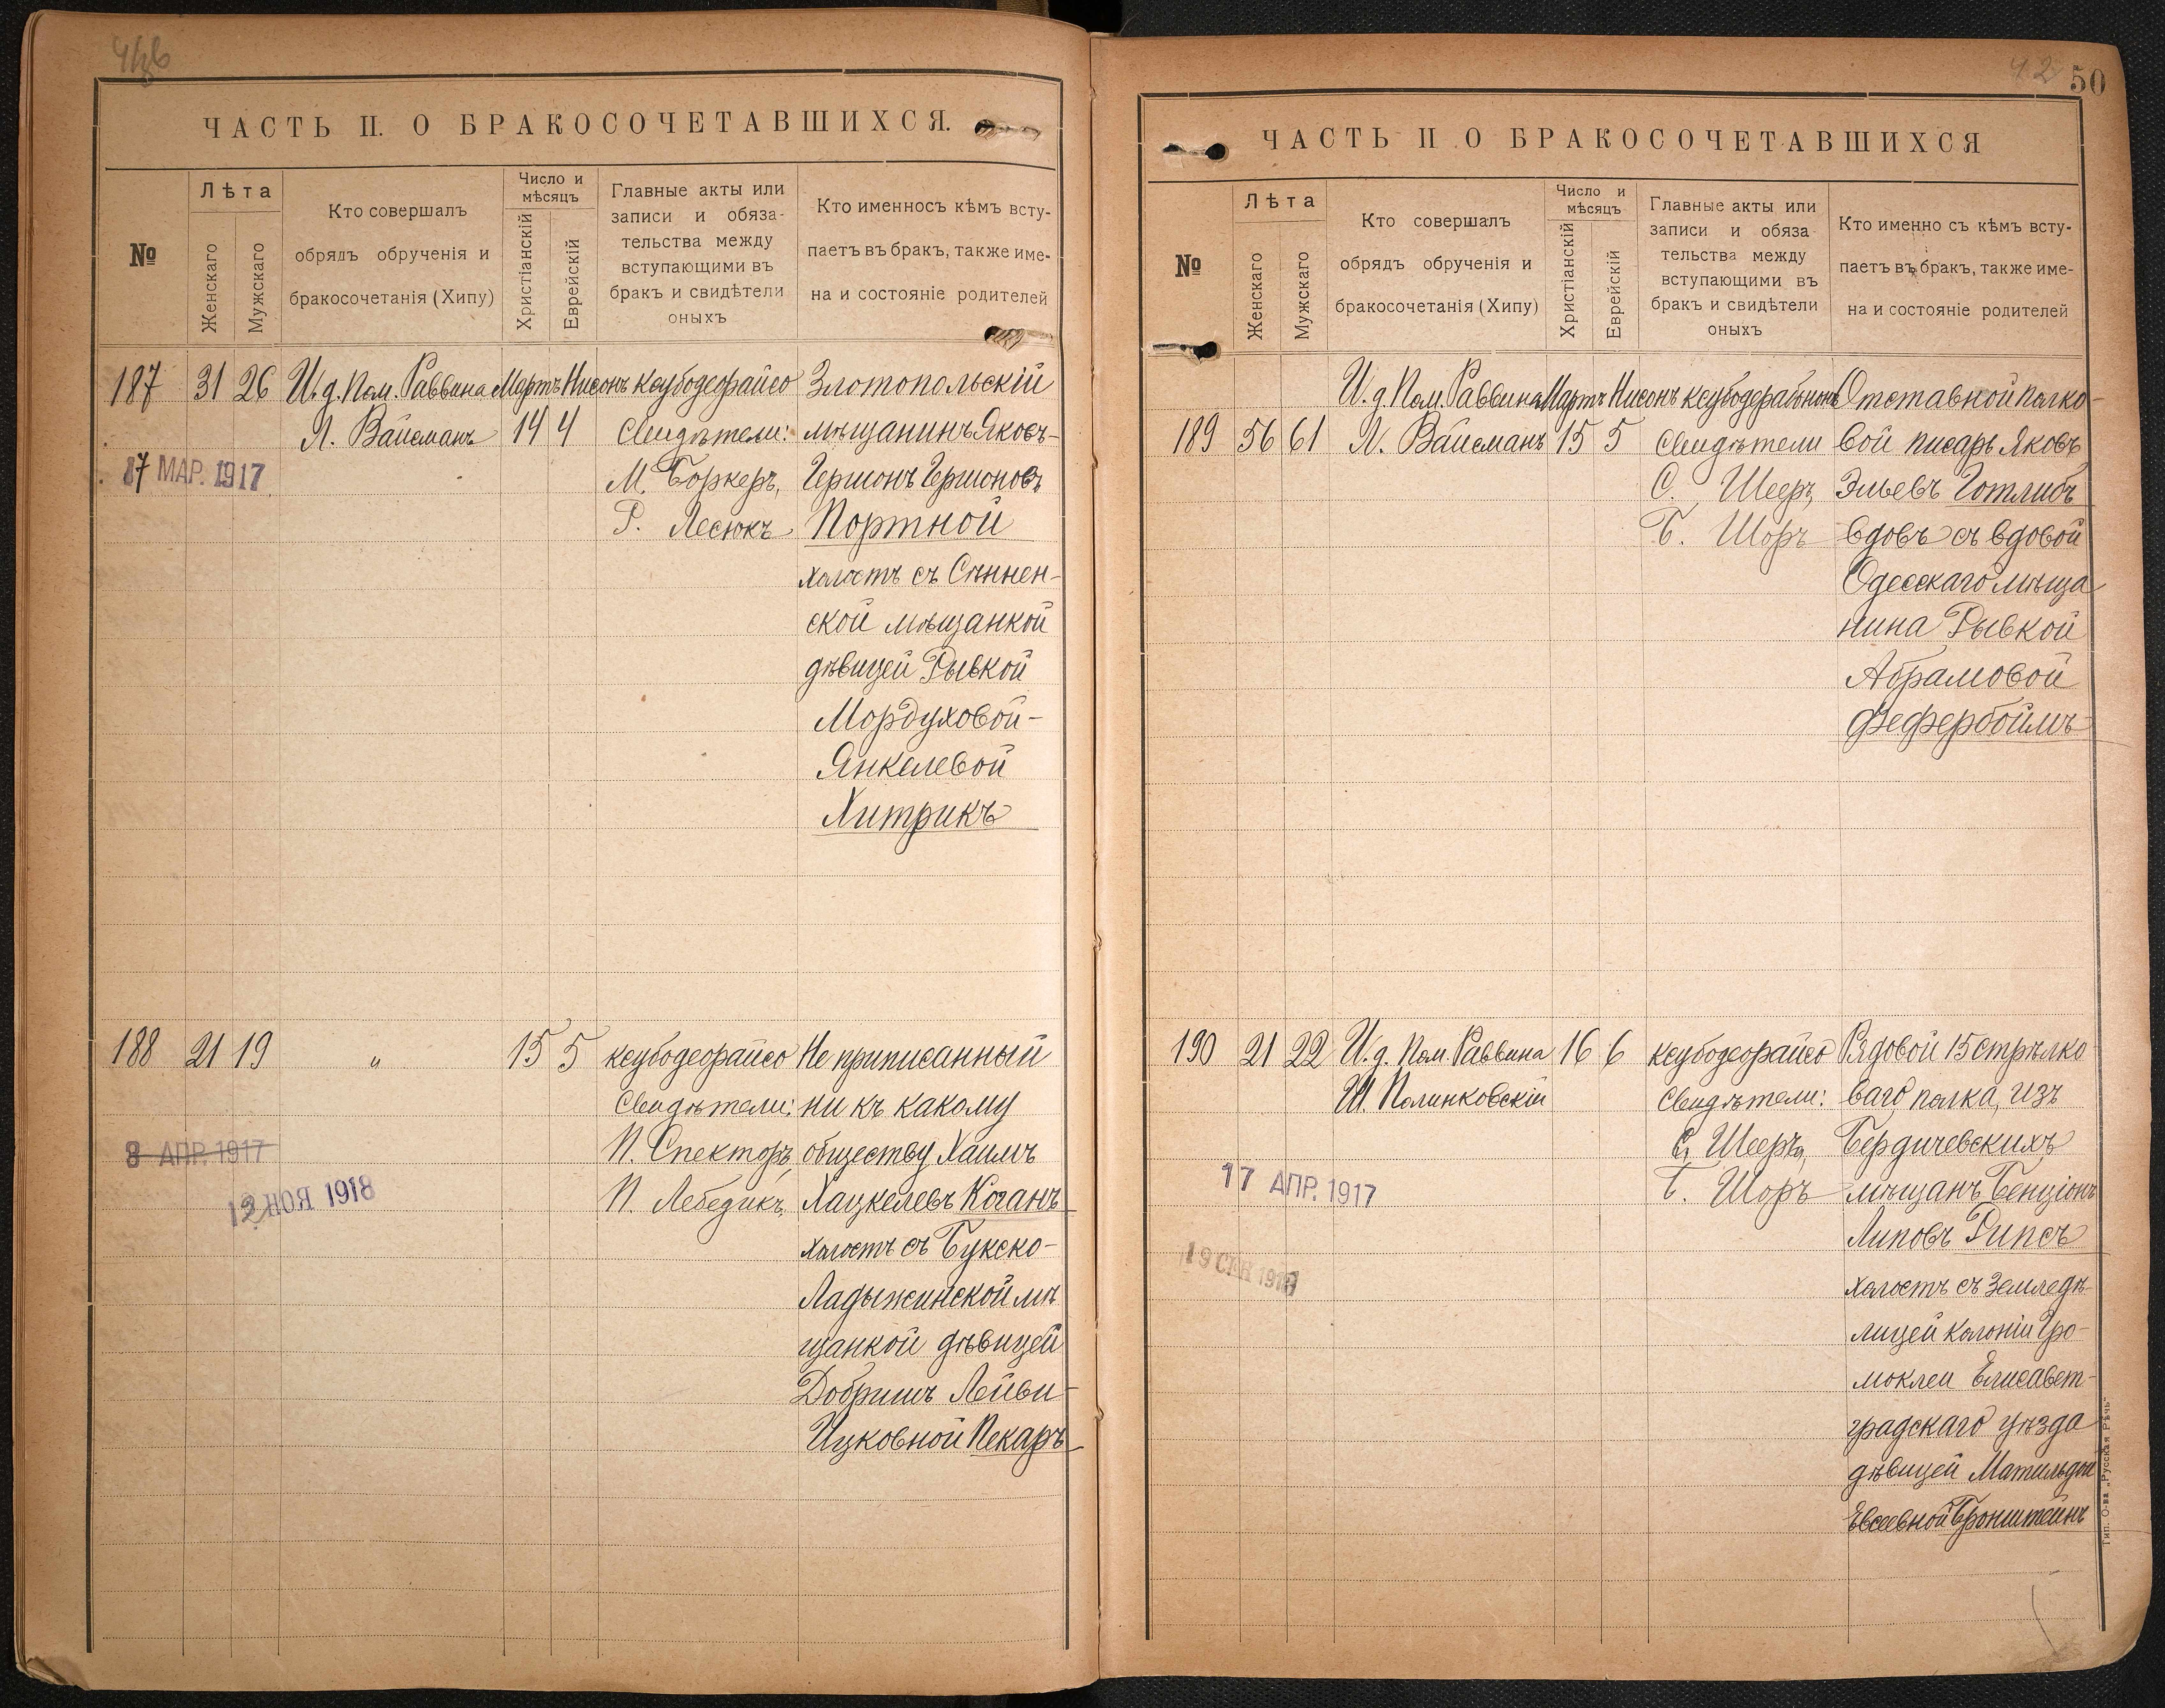 ЧАСТЬ II. О БРАКОСОЧЕТАВШИХСЯ.
№
Лѣта
Женскаго
Мужскаго
Кто совершалъ
обрядъ обрученія и
бракосочетанія (Хипу)
Число и
мѣсяцъ
Христіанскій
Еврейскій
Главные акты или
записи и обяза-
тельства между
вступающими въ
бракъ и свидѣтели
оныхъ
Кто именносъ кѣмъ всту-
паетъ въ бракъ, также име-
на и состояніе родителей
187 31 26 И.д. Пом. Раввина Мартъ Нисонъ ксубодеорайсо Злотопольскій
Л. Вайсманъ 14 4 Свидѣтели: мѣщанинъ Яковъ-
17 МАР. 1917
М. Боркеръ, Гершонъ Гершоновъ
Р. Лесюкъ Портной
холостъ съ Сѣннен-
ской мѣщанкой
дѣвицей Рывкой
Мордуховой-
Янкелевой
Хитрикъ
188 21 19 " 15 5 ксубодеорайсо Не приписанный
Свидѣтели: ни къ какому
8 АПР. 1917
П. Спекторъ, обществу Хаимъ
НОЯ 1918
П. Лебедикъ, Хацкелевъ Коганъ
холостъ съ Букско-
Ладыжинской мѣ
щанкой дѣвицей
Добришъ Лейви-
Ицковной Пекаръ
50
ЧАСТЬ II О БРАКОСОЧЕТАВШИХСЯ
№
Лѣта
Женскаго
Мужскаго
Кто совершалъ
обрядъ обрученія и
бракосочетанія (Хипу)
Число и
мѣсяцъ
Христіанскій
Еврейскій
Главные акты или
записи и обяза
тельства между
вступающими въ
бракъ и свидѣтели
оныхъ
Кто именно съ кѣмъ всту-
паетъ въ бракъ, также име-
на и состояніе родителей
И.д. Пом. Раввина Мартъ Нисонъ Отставной полко-
189 56 61 Л. Вайсманъ 15 5 Свидѣтели вой писарь Яковъ
С. Шееръ, Эльевъ Готлибъ
Б. Шоръ вдовъ съ вдовой
Одесскаго мѣща
нина Рывкой
Абрамовой
Фефербоймъ
190 21 22 И.д. Пом. Раввина 16 6 ксубодеорайсо Рядовой 15 стрѣлко
Ш. Полинковскій Свидѣтели: ваго полка, изъ
С. Шееръ, Бердичевскихъ
17 АПР. 1917
Б. Шоръ мѣщанъ Бенціонъ
Липовъ Рипсъ
19 СЕН
холостъ съ земледѣ-
лицей колоніи Гро-
моклеи Елисавет-
градскаго уѣзда
дѣвицей Матильдой
Евсеевной Бронштейнъ
Тип. О-ва „Русская Рѣчь"